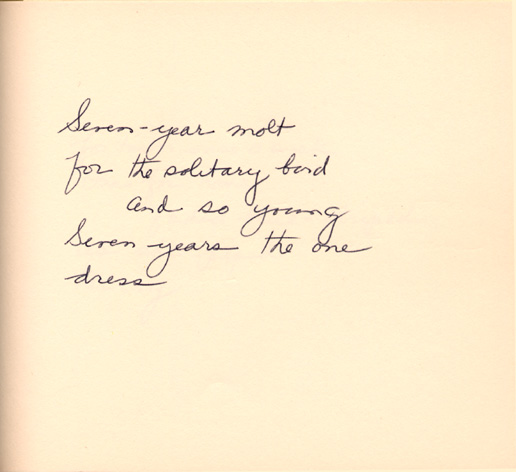 Seven-year molt
for the solitary bird
and so young
Seven years the one
dress